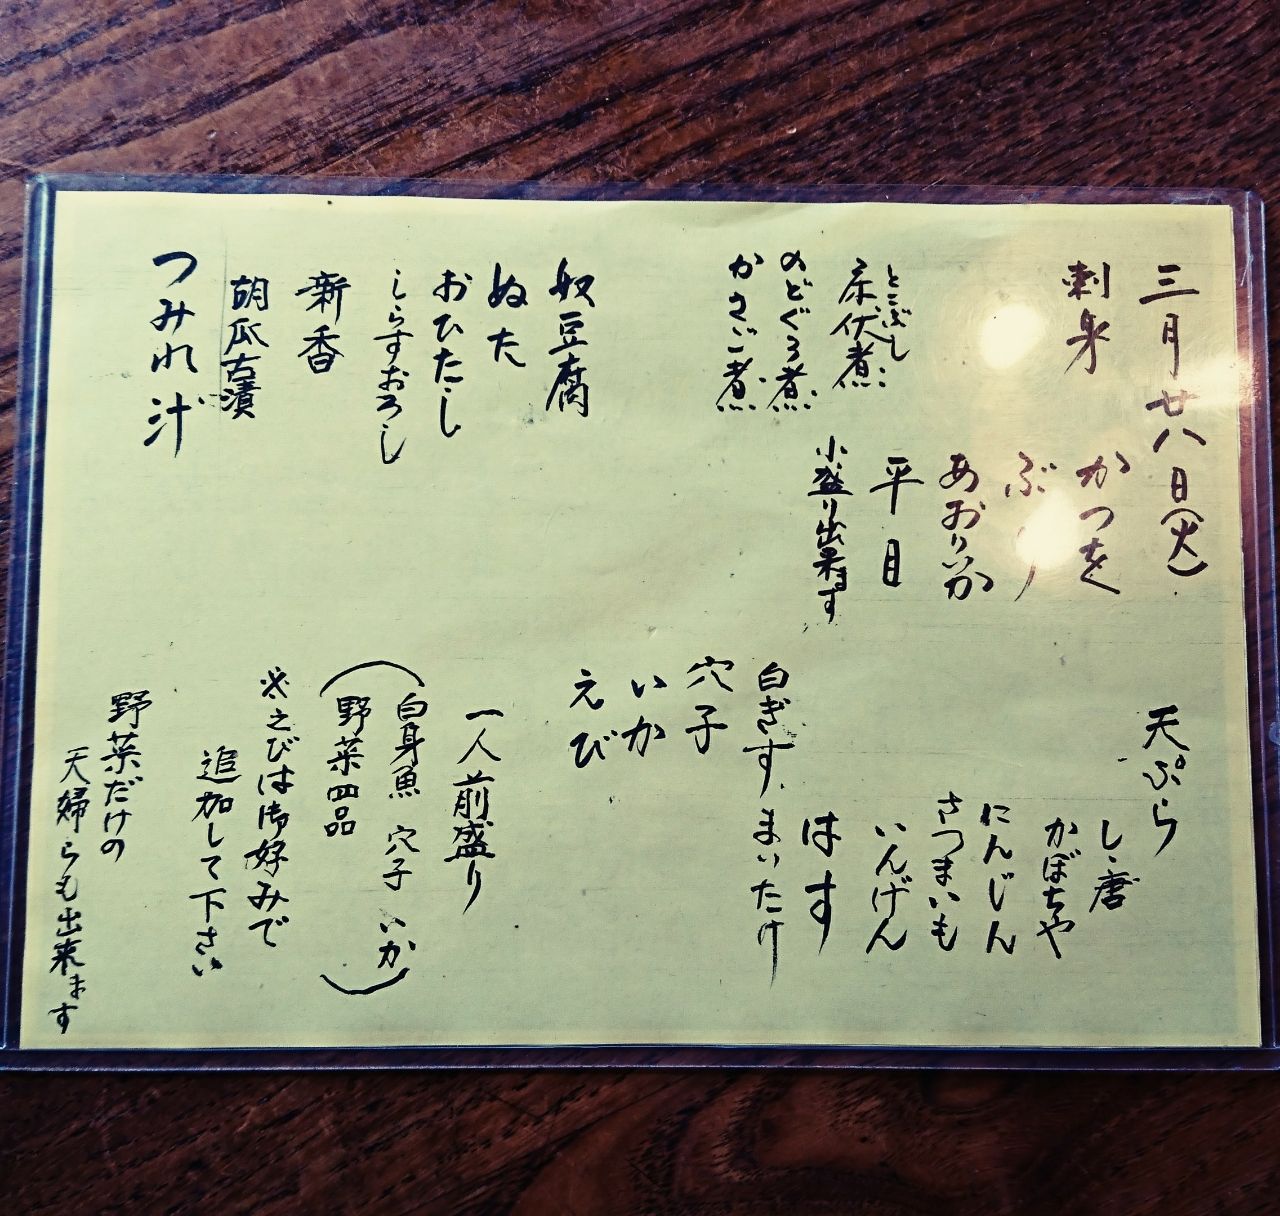 三月廿八日(火)
刺身
かつを
ぶり
あおりいか
平目
小盛り出来ます
とこぶし
床伏煮
のどぐろ煮
かさご煮
奴豆腐
ぬた
おひたし
しらすおろし
新香
胡瓜古漬
つみれ汁
天ぷら
し唐
かぼちゃ
にんじん
さつまいも
いんげん
はす
まいたけ
白ぎす
穴子
いか
えび
一人前盛り
(白身魚 穴子 いか
野菜四品)
※えびは御好みで
追加して下さい
野菜だけの
天婦らも出来ます